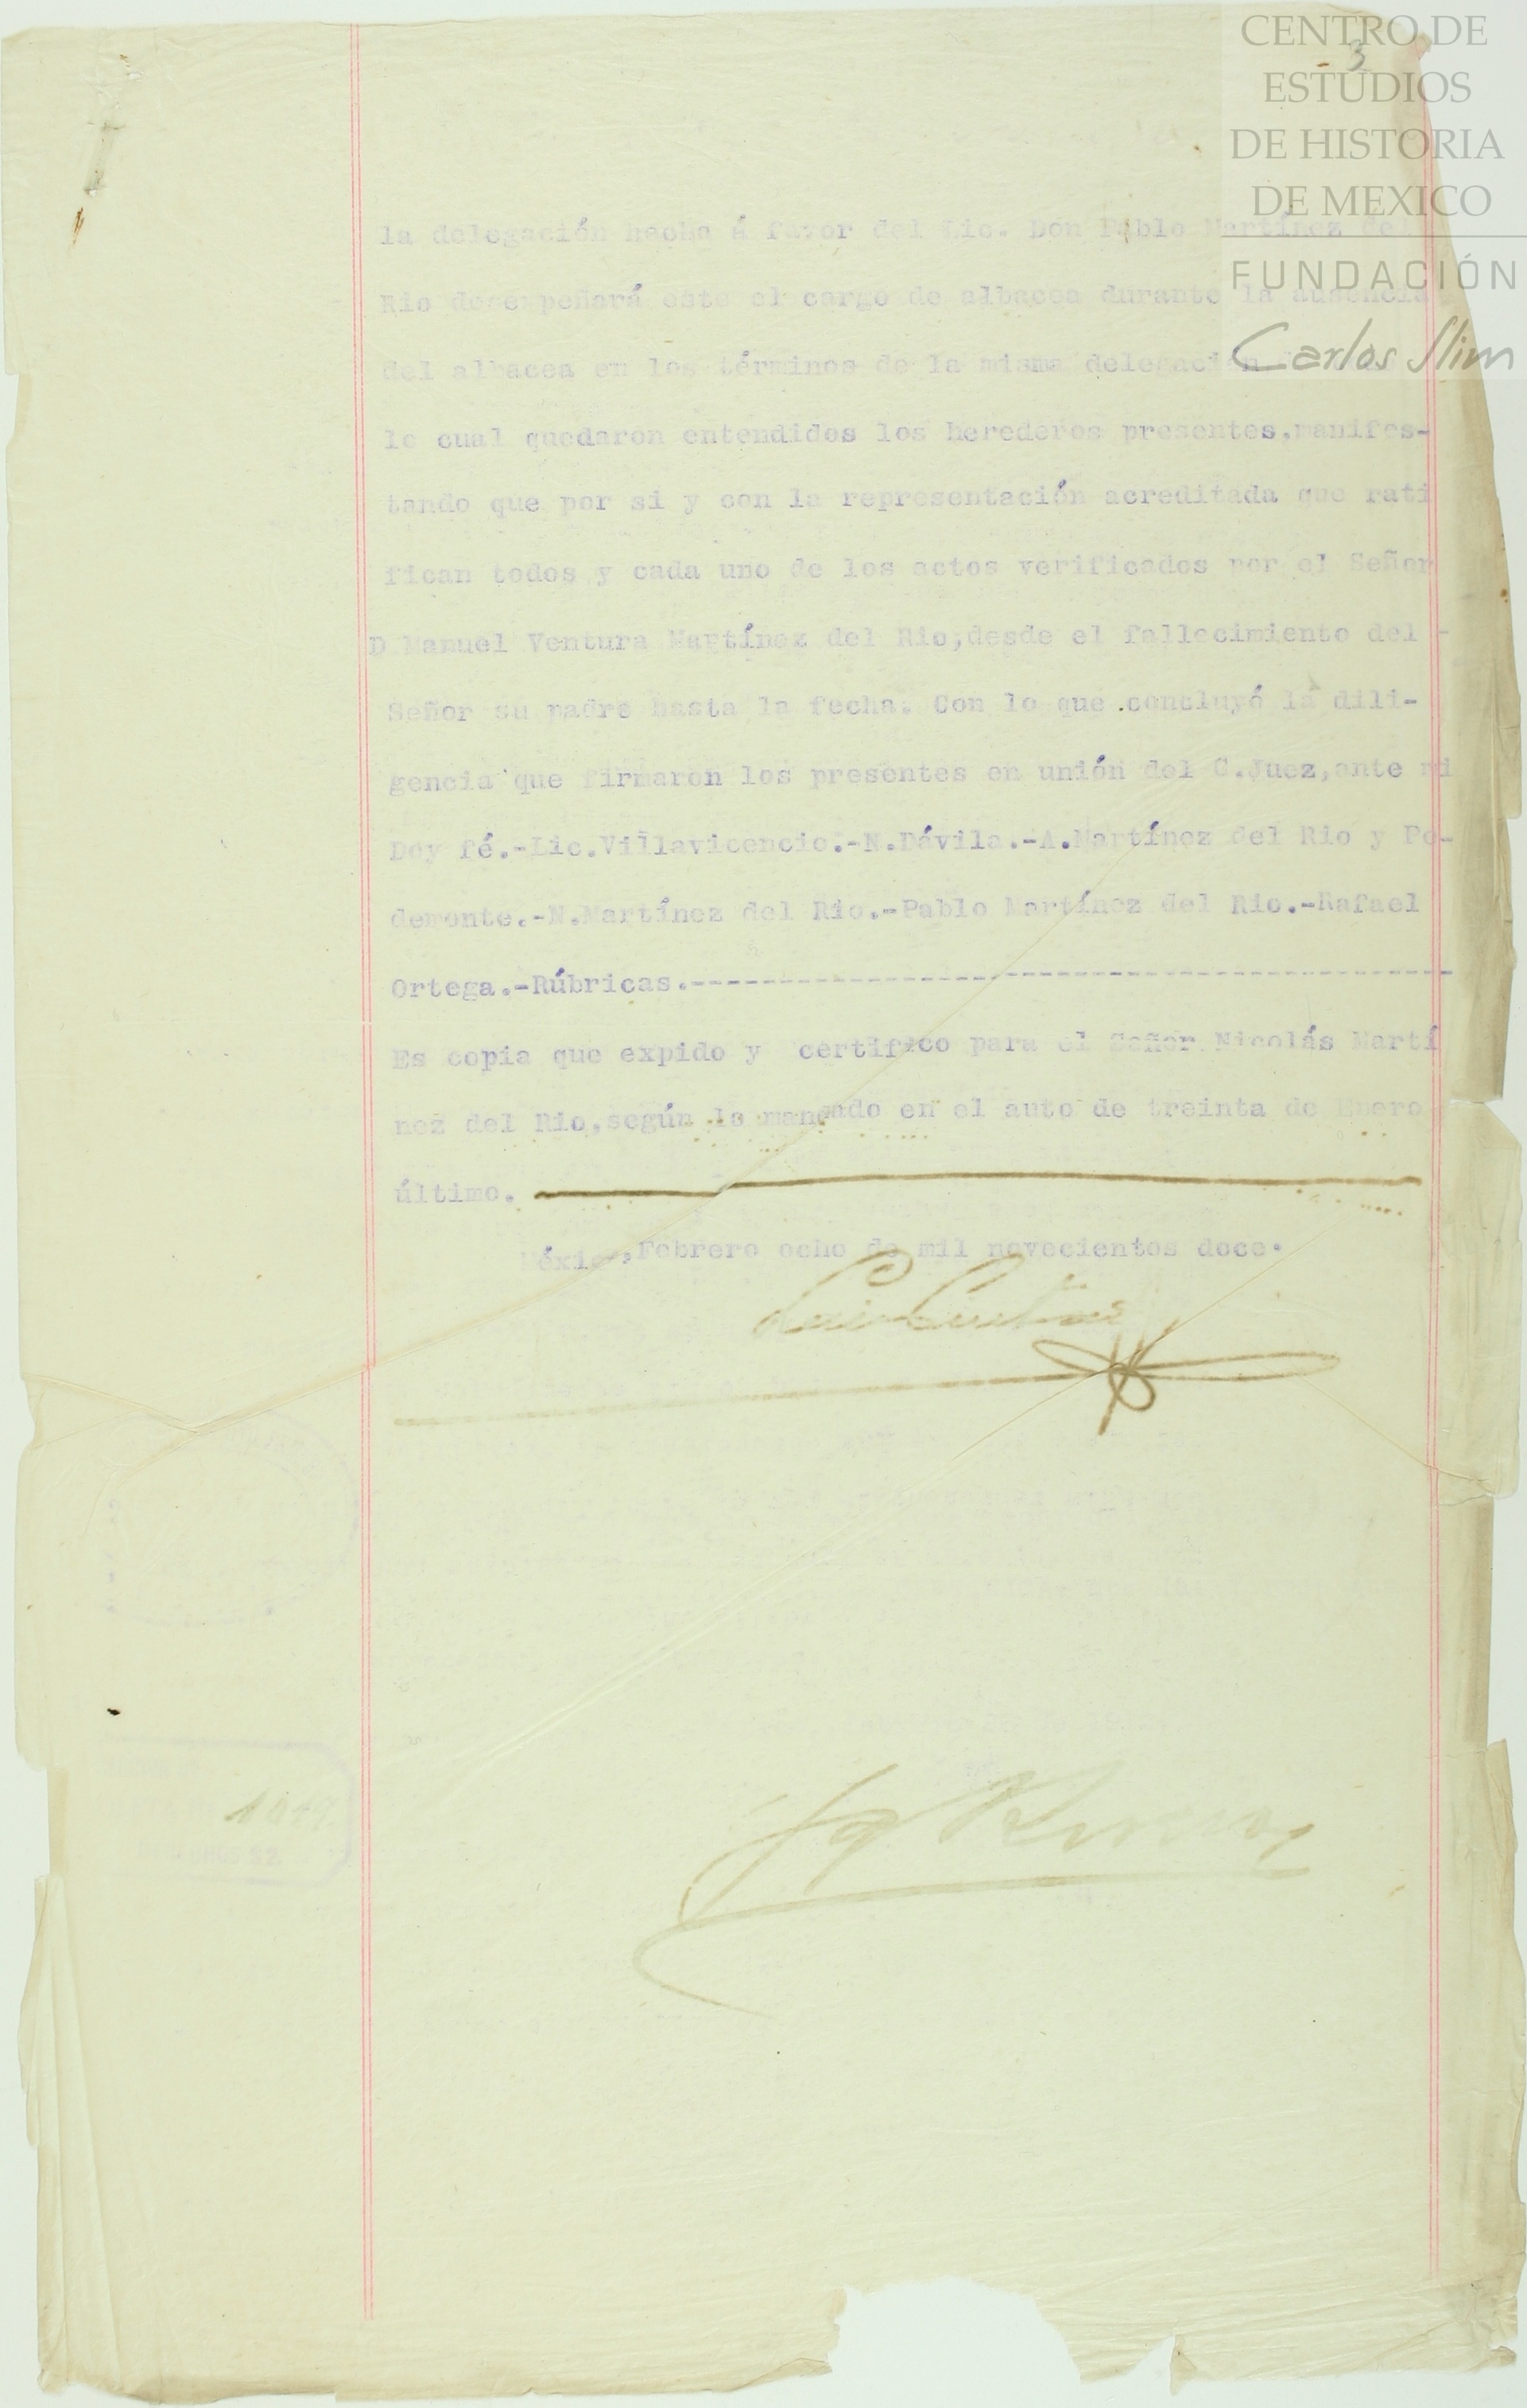 CENTRO DE
ESTUDIOS
DE HISTORIA
DE MEXICO
FUNDACIÓN
Carlos Slim
- 3
la delegación hecha á favor del Lic. Don Pablo Martínez del
Rio desempeñará este el cargo de albacea durante la ausencia
del albacea en los términos de la misma delegación
lo cual quedaron entendidos los herederos presentes.manifes-
tando que por si y con la representación acreditada que rati
fican todos y cada uno de los actos verificados por el Señor
D.Manuel Ventura Martínez del Rio,desde el fallecimiento del -
Señor su padre hasta la fecha. Con lo que concluyó la dili-
gencia que firmaron los presentes en unión del C.Juez,ante mi
Doy fé.-Lic.Villavicencio.-N.Dávila.-A.Martínez del Rio y Pe-
demonte.-N.Martínez del Rio.-Pablo Martínez del Rio.-Rafael
Ortega.-Rúbricas.------------------------------------------
Es copia que expido y certifico para el Señor Nicolás Martí
nez del Rio,según lo mandado en el auto de treinta de Enero
último.
México,Febrero ocho de mil novecientos doce.